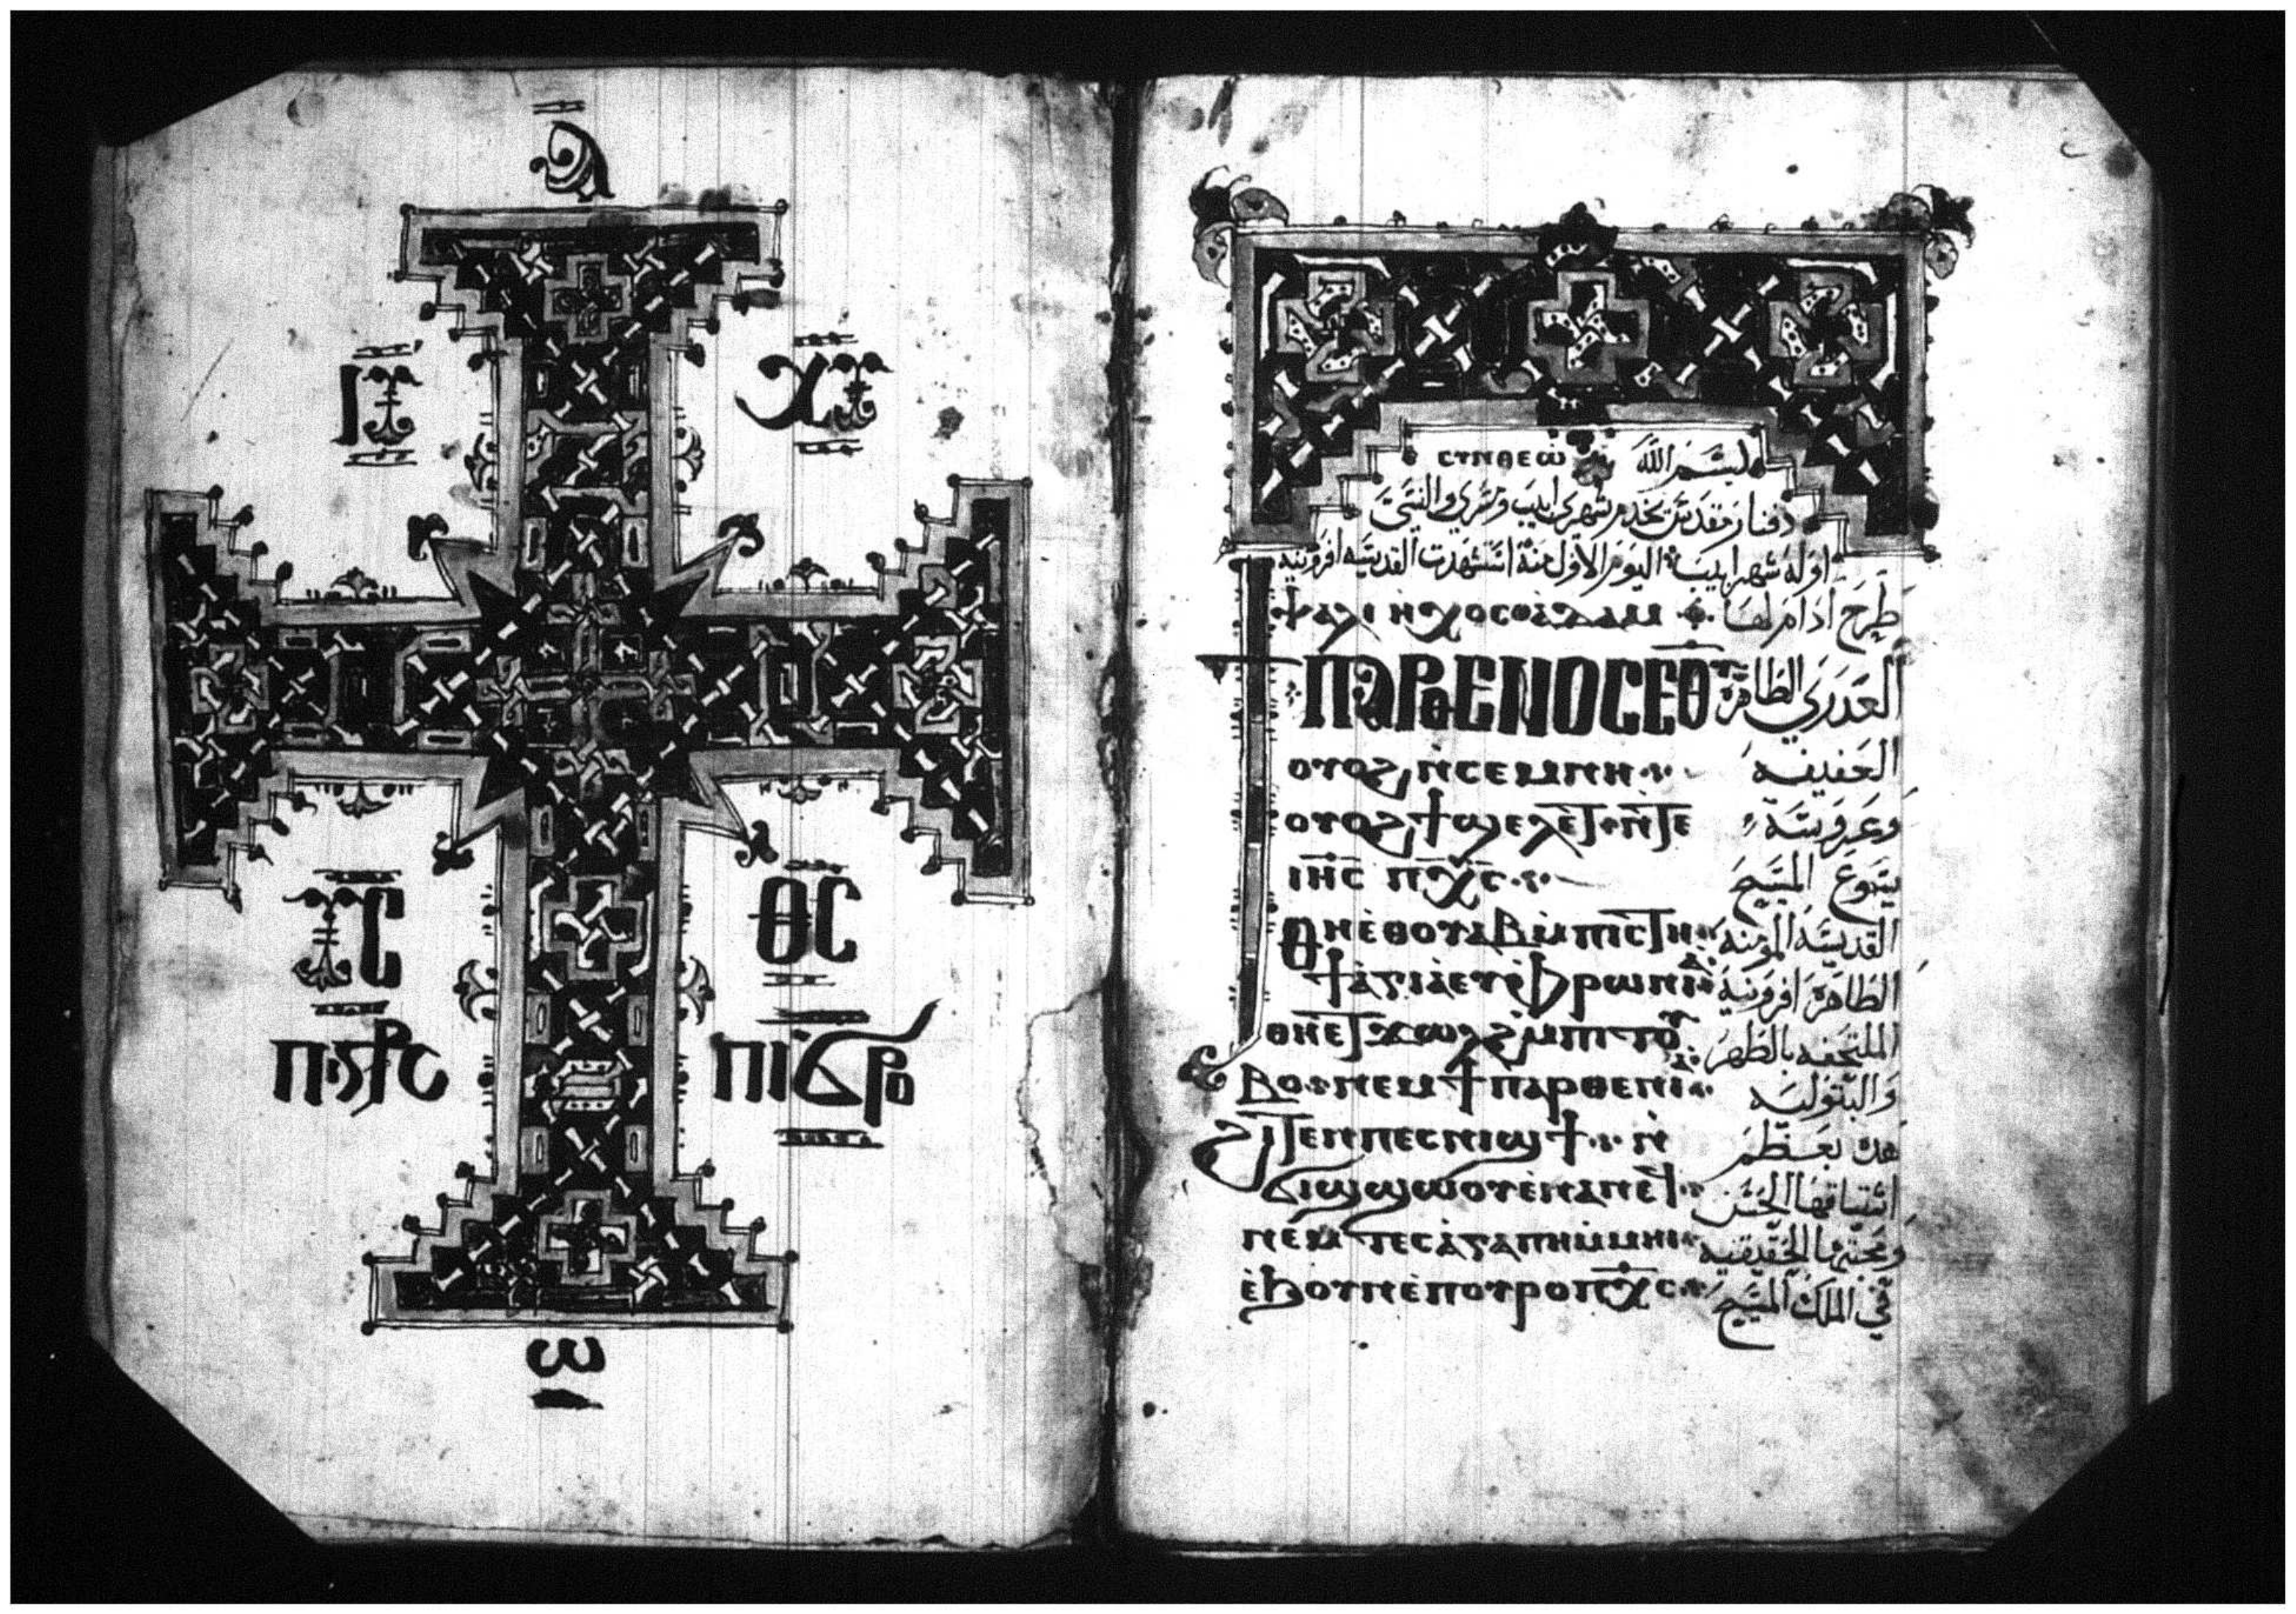 ⲁ̅
ⲓ̅ⲥ̅ ⲭ̅ⲥ̅
ⲩ̅ⲥ̅ ⲑ̅ⲥ̅
ⲡⲓϭⲣⲟ
ⲱ
ⲥⲩⲛⲑⲉⲱ بسم الله
دفنار مقدس يخدم شهري ابيب ومسري والنسي
اوله شهر ابيب اليوم الاول منه استشهدت القديسه افرونيه
ⲯⲁⲗⲓ ⲏⲭⲟⲥ ⲟⲁⲇⲁⲙ طرح ادام لها
ϯⲡⲁⲣⲑⲉⲛⲟⲥ ⲉⲑⲩ العدري الطاهره
ⲟⲩⲟϩ ⲛ̀ⲥⲉⲙⲛⲏ العفيفه
ⲟⲩⲟϩ ϯϣⲉⲗⲉⲧ ⲛ̀ⲧⲉ وعروسة
ⲓⲏ̅ⲥ̅ ⲡⲭ̅ⲥ̅ يسوع المسيح
ⲑⲏⲉⲑⲟⲩⲁⲃ ⲙ̀ⲡⲓⲥⲧⲏ القديسه المومنه
ϯⲁⲅⲓⲁ ⲉⲩⲫⲣⲱⲛⲓⲁ الطاهره افرونية
ⲑⲏⲉⲧϫⲱⲗϩ ⲙ̀ⲡⲓⲧⲟⲩ الملتحفه بالطهر
ⲃⲟ ⲛⲉⲙ ϯⲡⲁⲣⲑⲉⲛⲓⲁ والبتوليه
ϩⲓⲧⲉⲛ ⲡⲉⲥⲛⲓϣϯ ⲛ̀ هذه بعظم
ϭⲓϣϣⲱⲟⲩ ⲉⲛⲁⲛⲉϥ اشتياقها الحسن
ⲛⲉⲙ ⲧⲉⲥⲁⲅⲁⲡⲏ ⲙ̀ⲙⲏⲓ ومحبتها الحقيقيه
ⲉϧⲟⲩⲛ ⲉⲡⲟⲩⲣⲟ ⲡⲭ̅ⲥ̅ في الملك المسيح